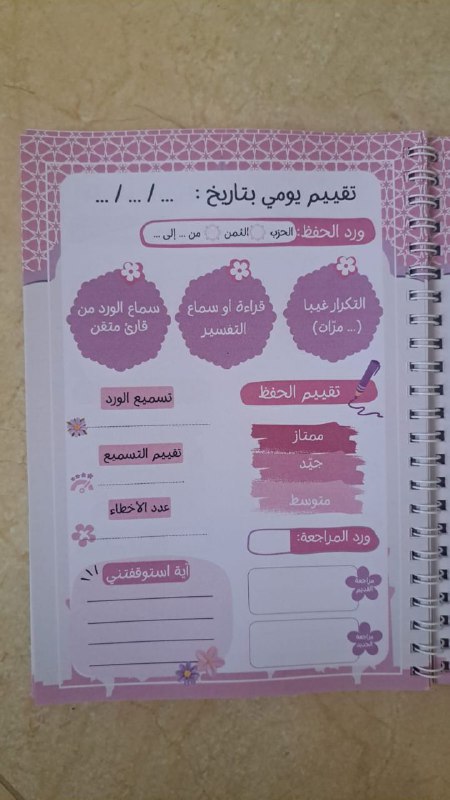 تقييم يومي بتاريخ : ... / ... / ...
ورد الحفظ: الحزب الثمن من ... إلى ...
التكرار غيبا
(... مرّات)
قراءة أو سماع
التفسير
سماع الورد من
قارئ متقن
تقييم الحفظ
ممتاز
جيّد
متوسط
تسميع الورد
تقييم التسميع
عدد الأخطاء
ورد المراجعة:
مراجعة
القديم
مراجعة
الجديد
آية استوقفتني